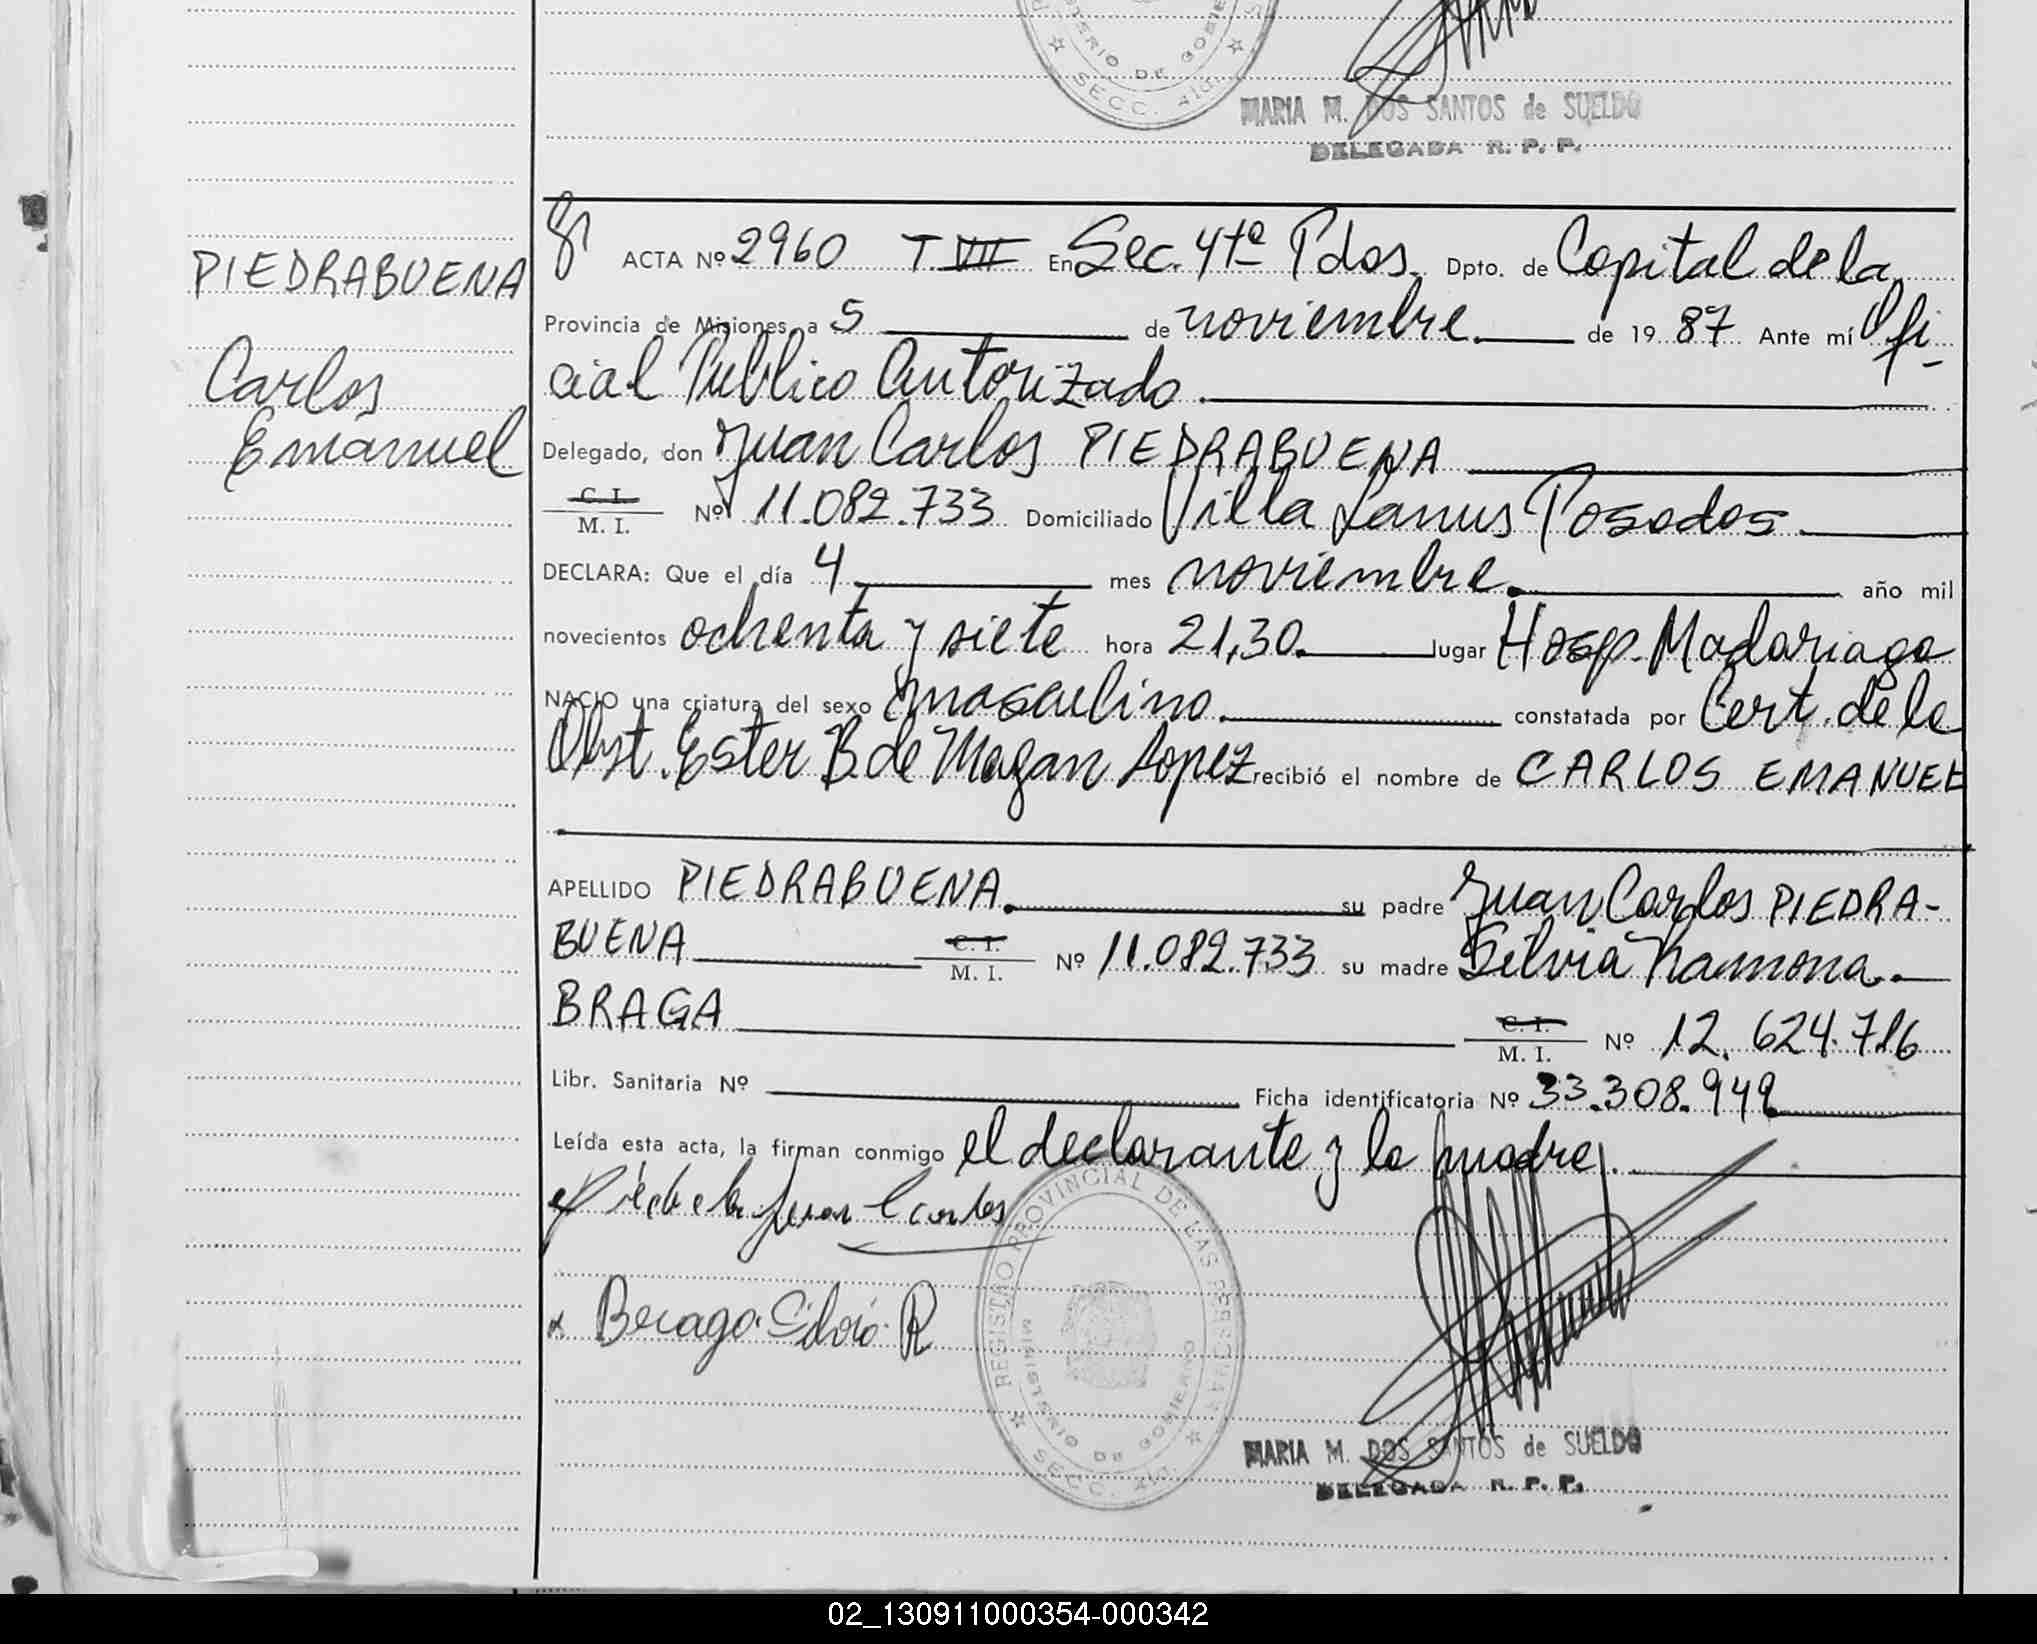 MINISTERIO DE GOBIERNO
☆ SECC. 4ta. ☆
MARIA M. DOS SANTOS de SUELDO
DELEGADA R. P. P.
PIEDRABUENA
Carlos
Emanuel
ACTA Nº 2960 T. VII En Sec. 4ta Pdas. Dpto. de Capital de la
Provincia de Misiones a 5 de noviembre. de 19 87 Ante mí Ofi-
cial Público Autorizado.
Delegado, don Juan Carlos PIEDRABUENA
C. I.
M. I. Nº 11.082.733 Domiciliado Villa Lanus Posadas.
DECLARA: Que el día 4 mes noviembre. año mil
novecientos ochenta y siete hora 21,30. lugar Hosp. Madariaga
NACIO una criatura del sexo masculino. constatada por Cert. de la
Obst. Ester B. de Magan Lopez recibió el nombre de CARLOS EMANUEL
APELLIDO PIEDRABUENA. su padre Juan Carlos PIEDRA-
BUENA C. I. M. I. Nº 11.082.733 su madre Silvia Ramona.
BRAGA C. I. M. I. Nº 12.624.716
Libr. Sanitaria Nº Ficha identificatoria Nº 33.308.949
Leída esta acta, la firman conmigo el declarante y la madre.
Juan Carlos
x Braga Silvia R
REGISTRO PROVINCIAL DE LAS PERSONAS
MINISTERIO DE GOBIERNO
☆ SECC. 4ta. ☆
MARIA M. DOS SANTOS de SUELDO
DELEGADA R. P. P.
02_130911000354-000342